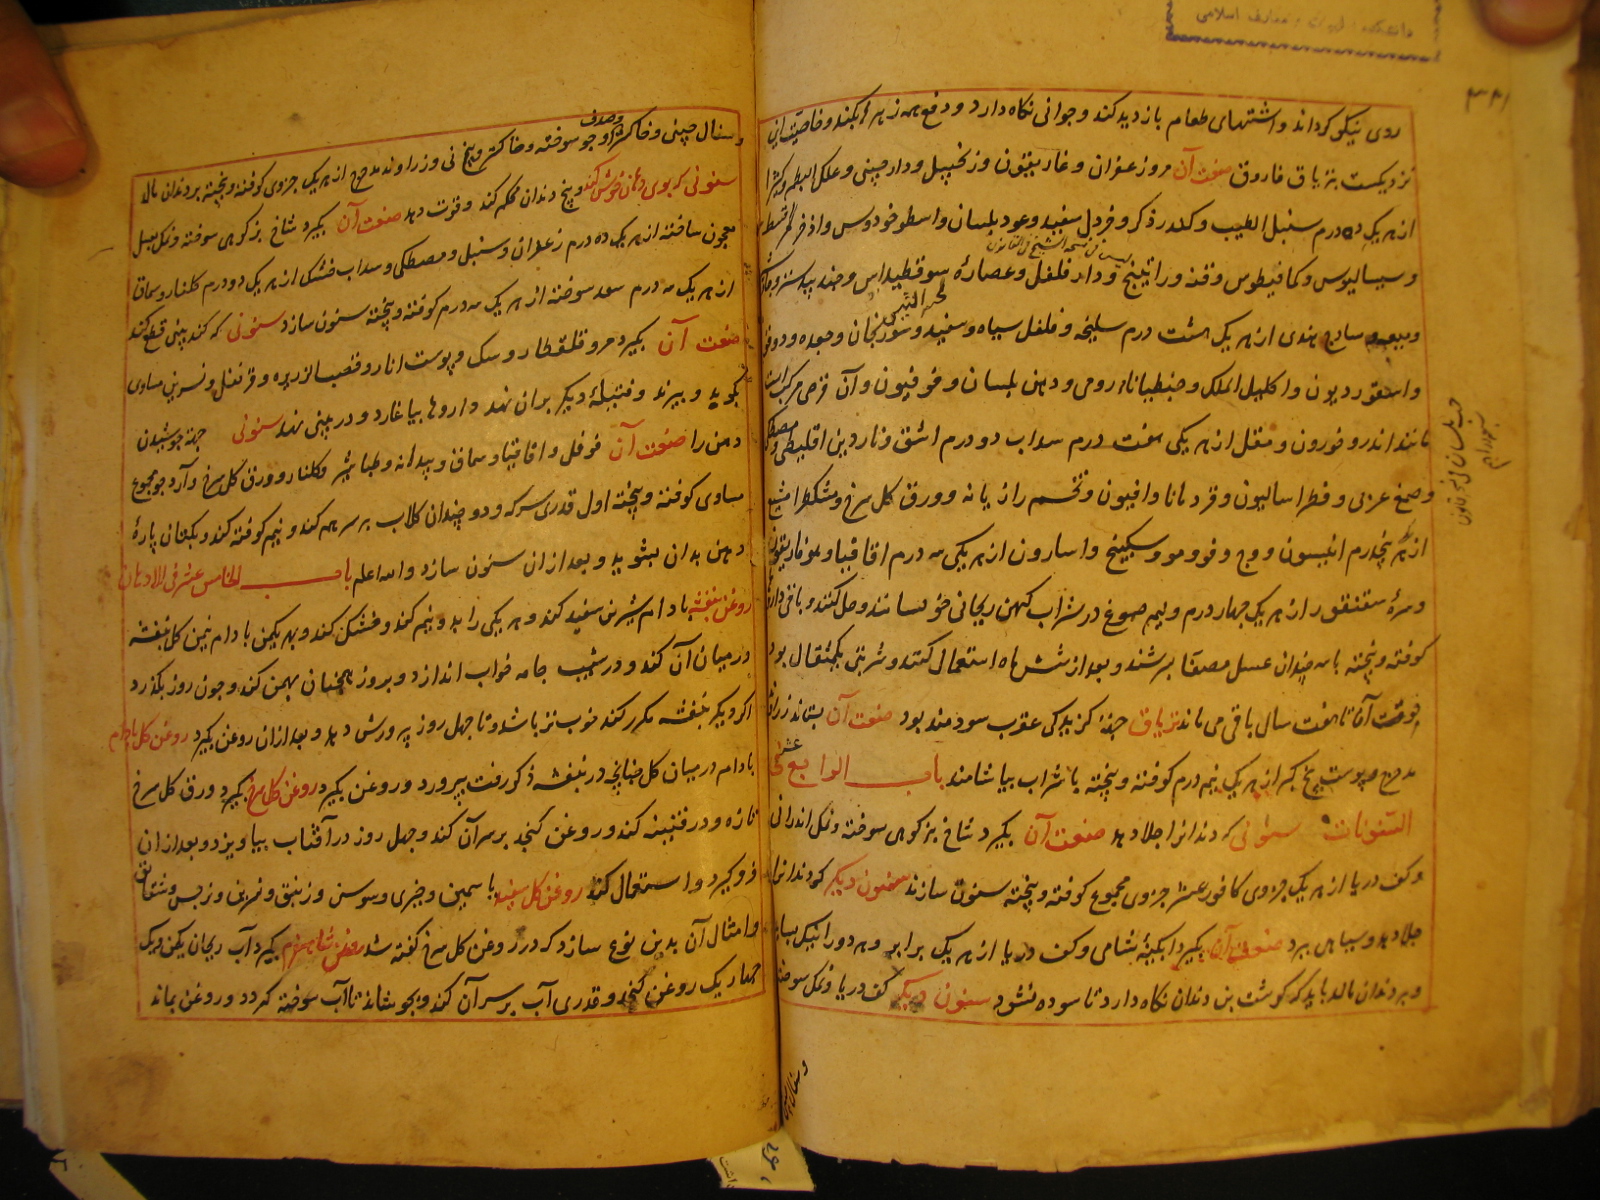 ۳۴۱
روی نیکو گرداند و اشتهای طعام بازدید کند و جوانی نکاه دارد و دفع همه زهرها بکند و خاصیت این
نزدیکست بتریاق فاروق صنعت آن مر و زعفران و غاریقون و زنجبیل و دارچینی و علک البطم و کثیرا
از هر یک ده درم سنبل الطیب و کندر ذکر و خردل سفید و عود بلسان و اسطوخودوس و اذخر و قسط
و سیسالیوس و کمافیطوس و قنه و راتینج و دار فلفل و عصاره سوقطیداس و جند بیدستر و
و میعه و سادج هندی از هر یک هشت درم سلیخه و فلفل سیاه و سفید و سورنجان و جعده و دوقو
و اسقوردیون و اکلیل الملک و جنطیانا رومی و دهن بلسان و قرص
مانند اندروخورون و مقل از هر یکی هفت درم سداب دو درم اشق و ناردین اقلیطی و مصطکی
و صمغ عربی و فطراسالیون و قردمانا و افیون و تخم رازیانه و ورق کل سرخ و مشکطرامشیع
از هر پنجدرم انیسون و وج و فو و مو و سکبینج و اسارون از هر یکی سه درم اقاقیا و هوفاریقون
و سرهٔ سقنقور از هر یک چهار درم و نیم صموغ در شراب کهن ریحانی خوسانند و حل کنند و باقی دارو
کوفته و پخته با سه چندان عسل مصفا بسرشند و بعد از شش ماه استعمال کنند و شربتی یکمثقال بود
و قوت آن تا هفت سال باقی می ماند تریاق جهة کزیدکی عقرب سودمند بود صنعت آن بستاند زراوند
مدحرج و پوست بیخ کبر از هر یک نیم درم کوفته و پخته با شراب بیاشامند باب الرابع عشر فی
السنونات سنونی که دندانرا جلا دهد صنعت آن بکیرد شاخ بز کوهی سوخته و نمک اندرانی
و کف دریا از هر یک جزوی کافور عشر جزوی مجموع کوفته و پخته سنون سازند سنون دیکر که دندانرا
جلا دهد و سیاهی ببرد صنعت آن بکیرد ابکینهٔ شامی و کف دریا از هر یک برابر و هر دو را نیک بساید
و بر دندان مالد باید که کوشت بن دندان نکاه دارد تا سوده نشود سنون دیکر کف دریا و نمک سوخته
و سفال چینی
و سفال چینی و خاکستر و جو سوخته و صدف و خاکستر و بیخ نی و زراوند مدحرج از هر یک جزوی کوفته و پخته بر دندان مالد
سنونی که بوی دهان خوش کند و بیخ دندان محکم کند و قوت دهد صنعت آن بکیرد شاخ بز کوهی سوخته و نمک بعسل
معجون ساخته از هر یک ده درم زعفران و سنبل و مصطکی و سداب خشک از هر یک دو درم کلنار و سماق
از هر یک سه درم سعد سوخته از هر یک سه درم کوفته و پخته سنون سازد سنونی که کند بینی قطع کند
صنعت آن بکیرد مر و قلقطار و سک و پوست انار و قصب الذریره و قرنفل و نسرین مساوی
بکوبد و ببیزند و فتیلهٔ دیکر بران نهد داروها بیاغارد و در بینی نهد سنونی جهة جوشیدن
دهن را صنعت آن فوفل و اقاقیا و سماق و بیدانه و طباشیر و کلنار و ورق کل سرخ و آرد جو مجموع
مساوی کوفته و پخته اول قدری سرکه و دو چندان کلاب بر سر هم کند و نیم کوفته کند و بکتان پارهٔ
دهن بدان بشوید و بعد از ان سنون سازد والله اعلم باب الخامس عشر فی الادهان
روغن بنفشه بادام شیرین سفید کند و هر یکی را بدو نیم کند و خشک کند و بهر یکمن بادام نیمن کل بنفشه
در میان آن کند و در شیب جامه خواب اندازد و هر روز همچنان بهمن کند و جون روز بکذرد
اکر دیکر بنفشه مکرر کند خوب تر باشد و تا چهل روز پرورش دهد و بعد ازان روغن بکیرد روغن کل بادام
بادام در میان کل چنانچه در بنفشه ذکر رفت بپرورد و روغن بکیرد روغن کل سرخ بکیرد ورق کل سرخ
تازه و در قنینه کند و روغن کنجد بر سر آن کند و چهل روز در آفتاب بیاویزد و بعد از ان
فرو کیرد و استعمال کند روغن کل سفید یاسمین و خیری و سوسن و زنبق و نسرین و نرجس و شقایق
و امثال آن بدین نوع سازد که در روغن کل سرخ کفته شد روغن شاهسپرم بکیرد آب ریحان یکمن و یک
چهاریک روغن کنجد و قدری آب بر سر آن کند و بجوشاند تا آب سوخته کردد و روغن بماند